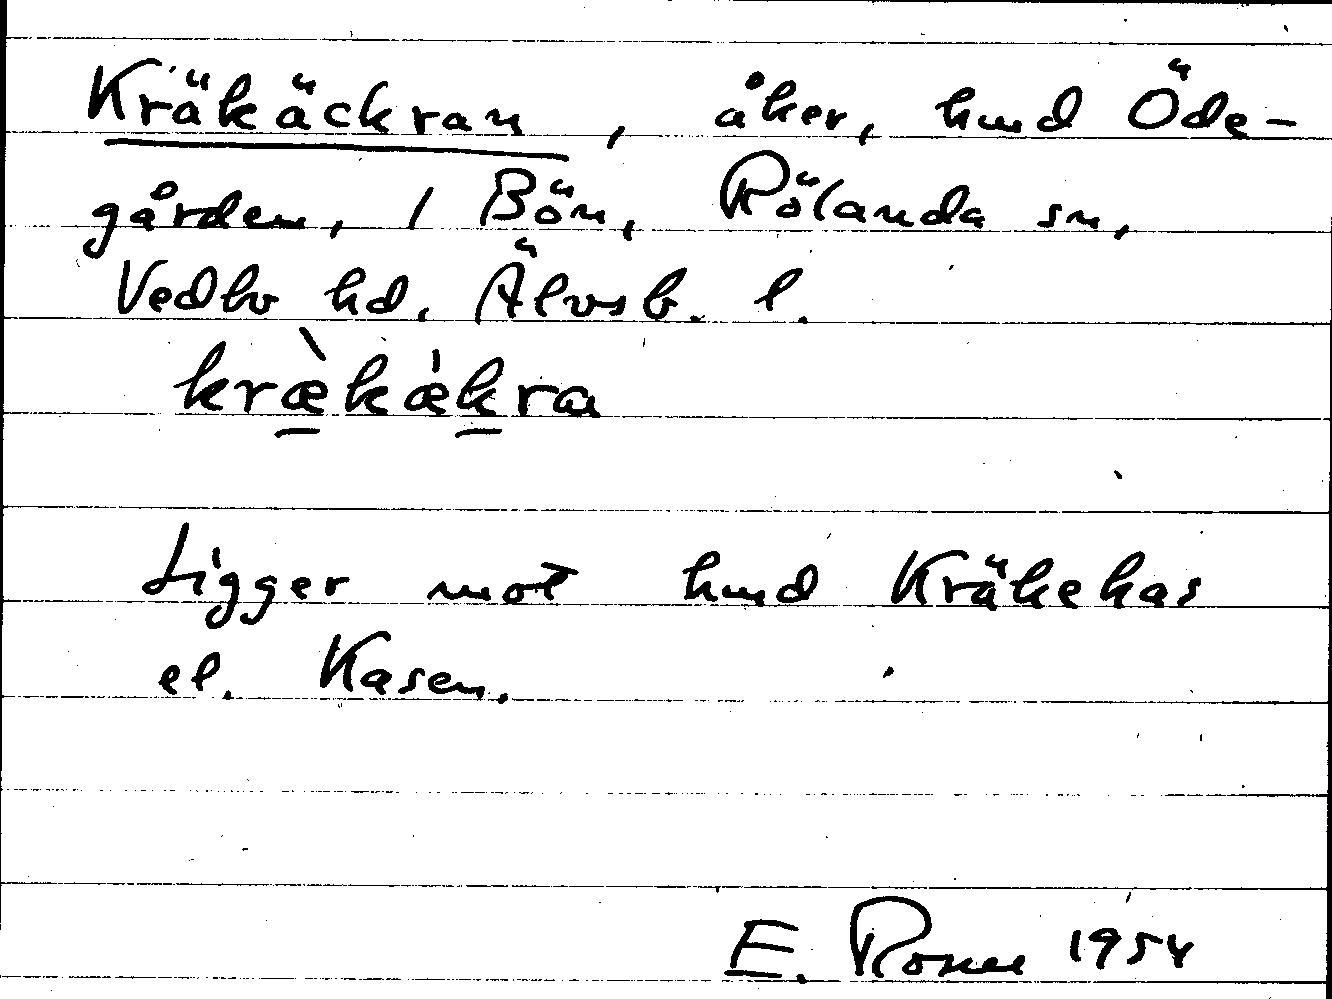 Kräkäckran, åker, hmd Öde-
gården, 1 Bön, Rölanda sn,
Vedbo hd. Älvsb. l.
kræ̀kæ̍kra
Ligger mot hmd Kräkekas
el. Kasen.
E. 1954